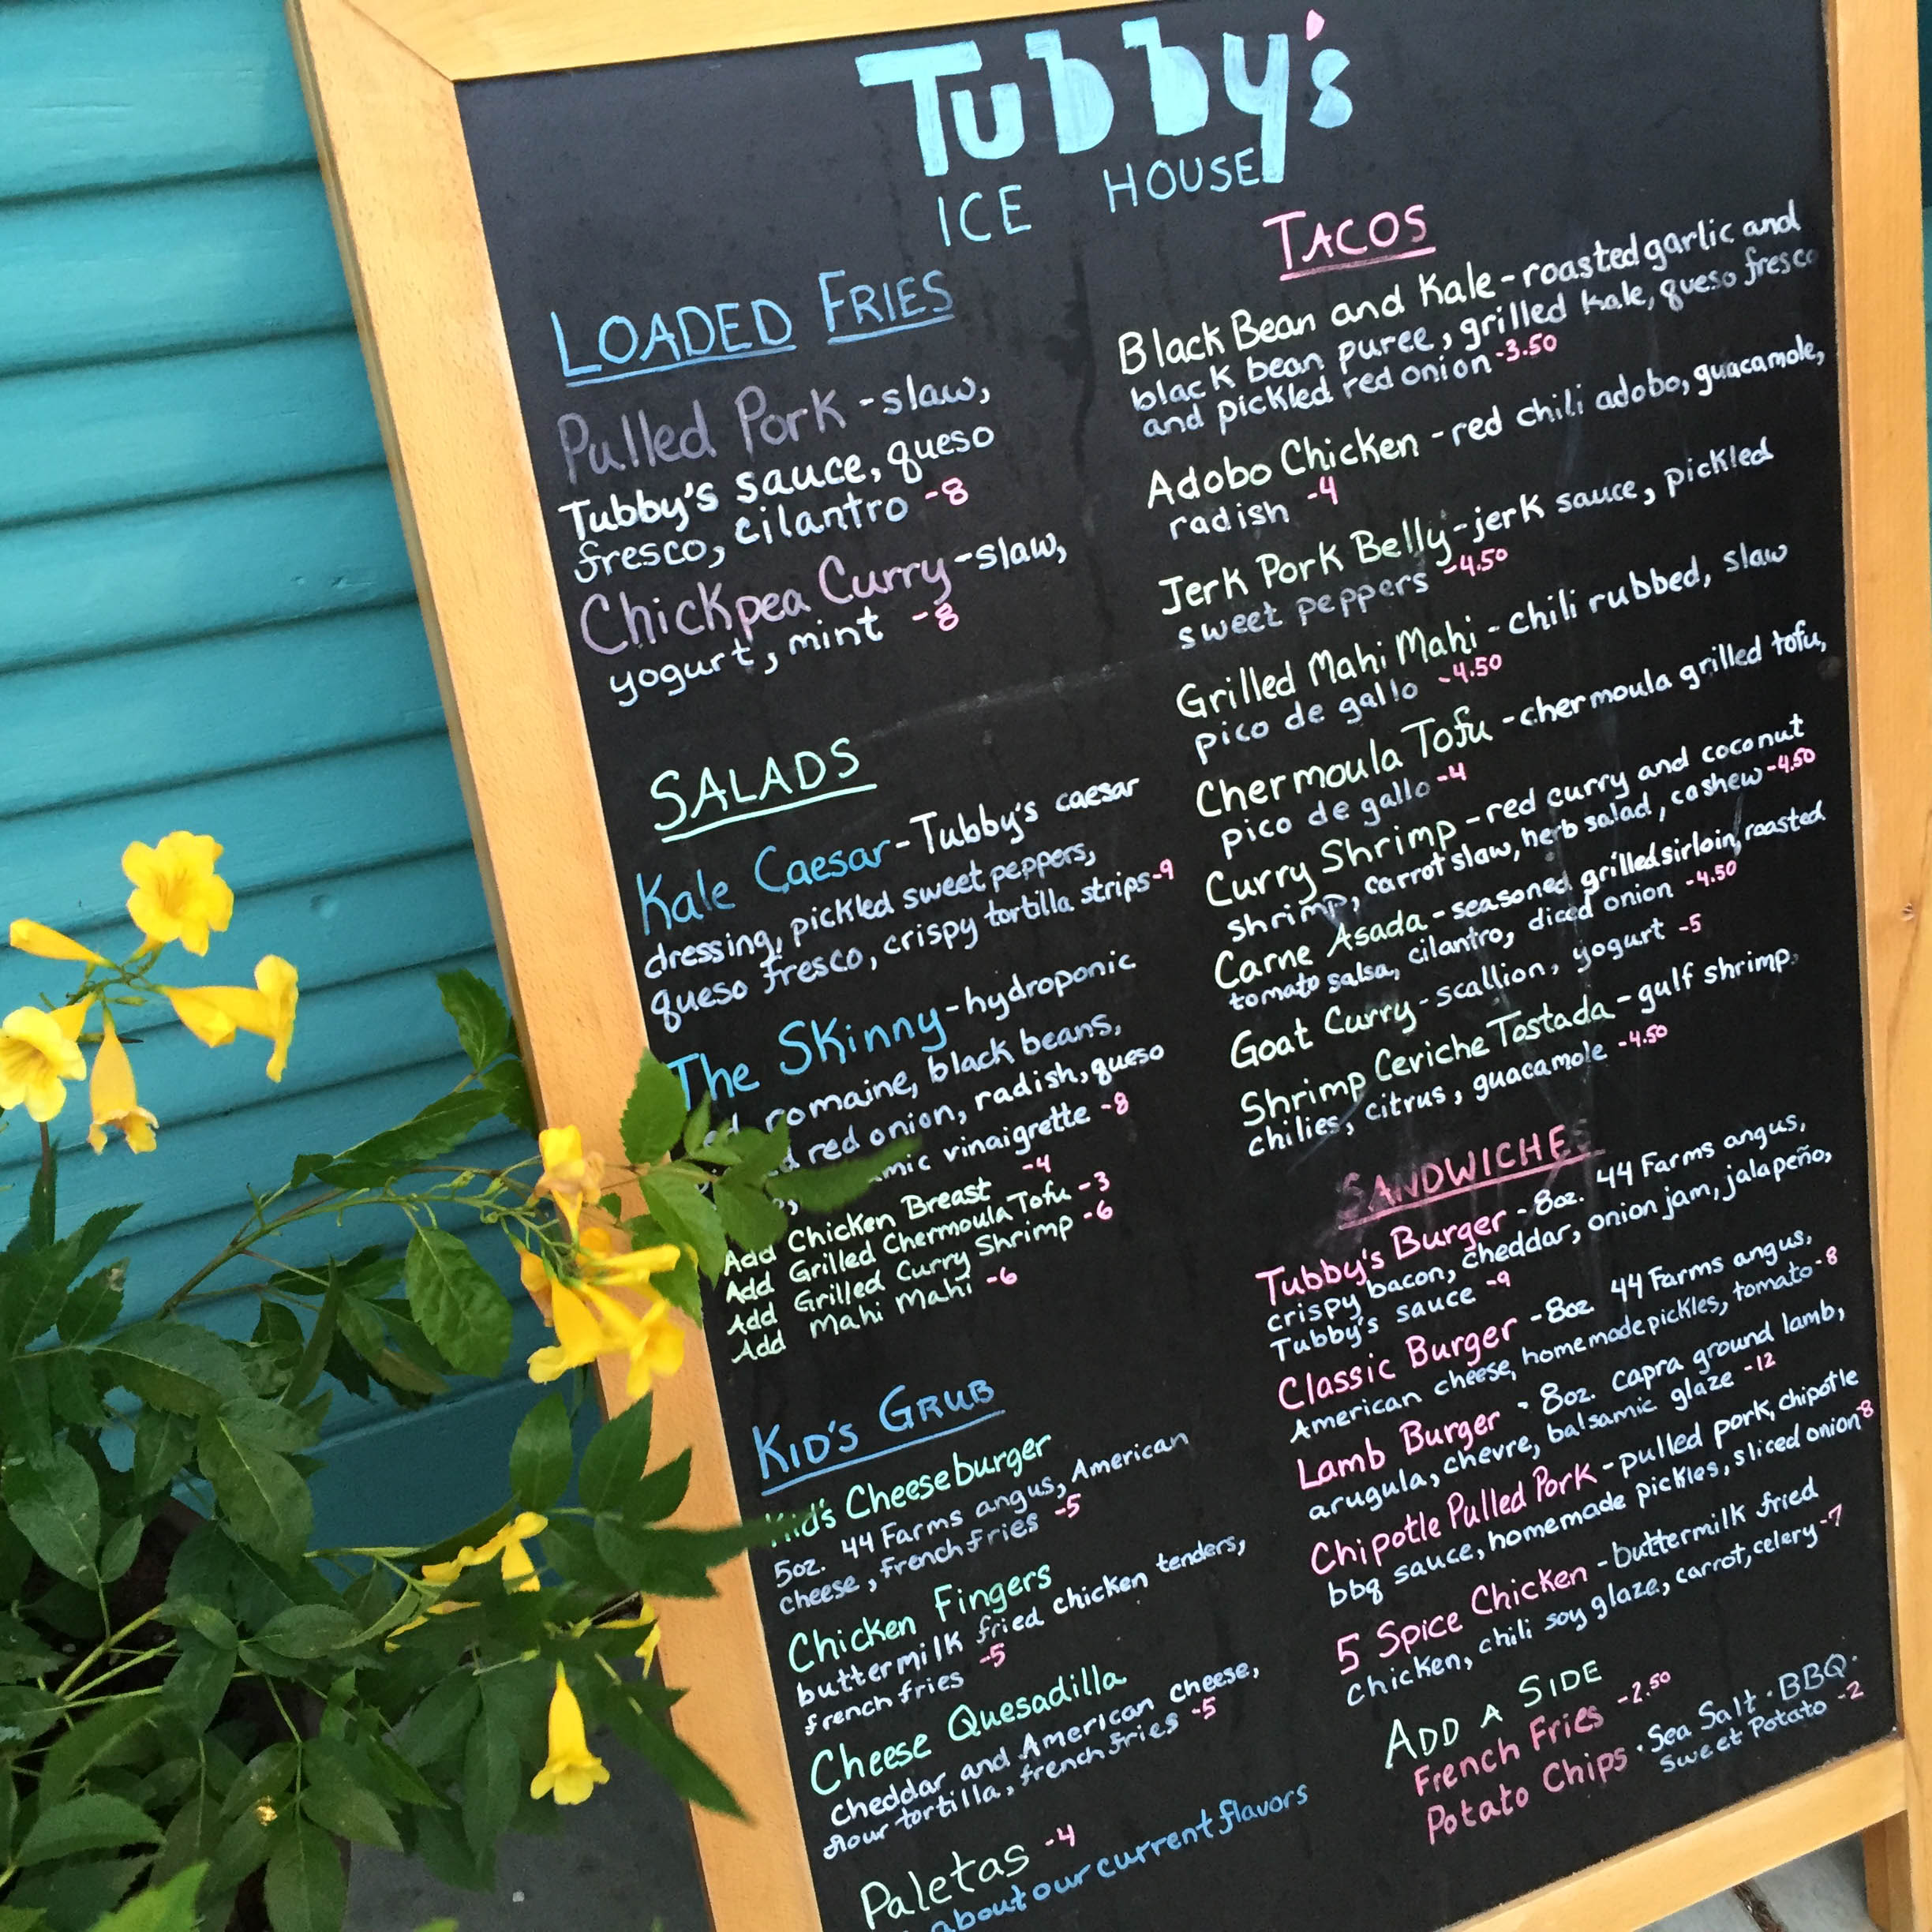 Tubby's
ICE HOUSE
LOADED FRIES
Pulled Pork - slaw,
Tubby's sauce, queso
fresco, cilantro - 8
Chickpea Curry - slaw,
yogurt, mint - 8
SALADS
Kale Caesar - Tubby's caesar
dressing, pickled sweet peppers,
queso fresco, crispy tortilla strips - 9
The Skinny - hydroponic
romaine, black beans,
red onion, radish, queso
vinaigrette - 8
Add Chicken Breast - 4
Add Grilled Chermoula Tofu - 3
Add Grilled Curry Shrimp - 6
Add Mahi Mahi - 6
KID'S GRUB
Kid's Cheeseburger
5oz. 44 Farms angus, American
cheese, french fries - 5
Chicken Fingers
buttermilk fried chicken tenders,
french fries - 5
Cheese Quesadilla
cheddar and American cheese,
flour tortilla, french fries - 5
Paletas - 4
about our current flavors
TACOS
Black Bean and Kale - roasted garlic and
black bean puree, grilled kale, queso fresco
and pickled red onion - 3.50
Adobo Chicken - red chili adobo, guacamole,
radish - 4
Jerk Pork Belly - jerk sauce, pickled
sweet peppers - 4.50
Grilled Mahi Mahi - chili rubbed, slaw
pico de gallo - 4.50
Chermoula Tofu - chermoula grilled tofu,
pico de gallo - 4
Curry Shrimp - red curry and coconut
shrimp, carrot slaw, herb salad, cashew - 4.50
Carne Asada - seasoned grilled sirloin, roasted
tomato salsa, cilantro, diced onion - 4.50
Goat Curry - scallion, yogurt - 5
Shrimp Ceviche Tostada - gulf shrimp,
chilies, citrus, guacamole - 4.50
SANDWICHES
Tubby's Burger - 8oz. 44 Farms angus,
crispy bacon, cheddar, onion jam, jalapeño,
Tubby's sauce - 9
Classic Burger - 8oz. 44 Farms angus,
American cheese, homemade pickles, tomato - 8
Lamb Burger - 8oz. capra ground lamb,
arugula, chevre, balsamic glaze - 12
Chipotle Pulled Pork - pulled pork, chipotle
bbq sauce, homemade pickles, sliced onion - 8
5 Spice Chicken - buttermilk fried
chicken, chili soy glaze, carrot, celery - 7
ADD A SIDE
French Fries - 2.50
Potato Chips · Sea Salt · BBQ ·
Sweet Potato - 2